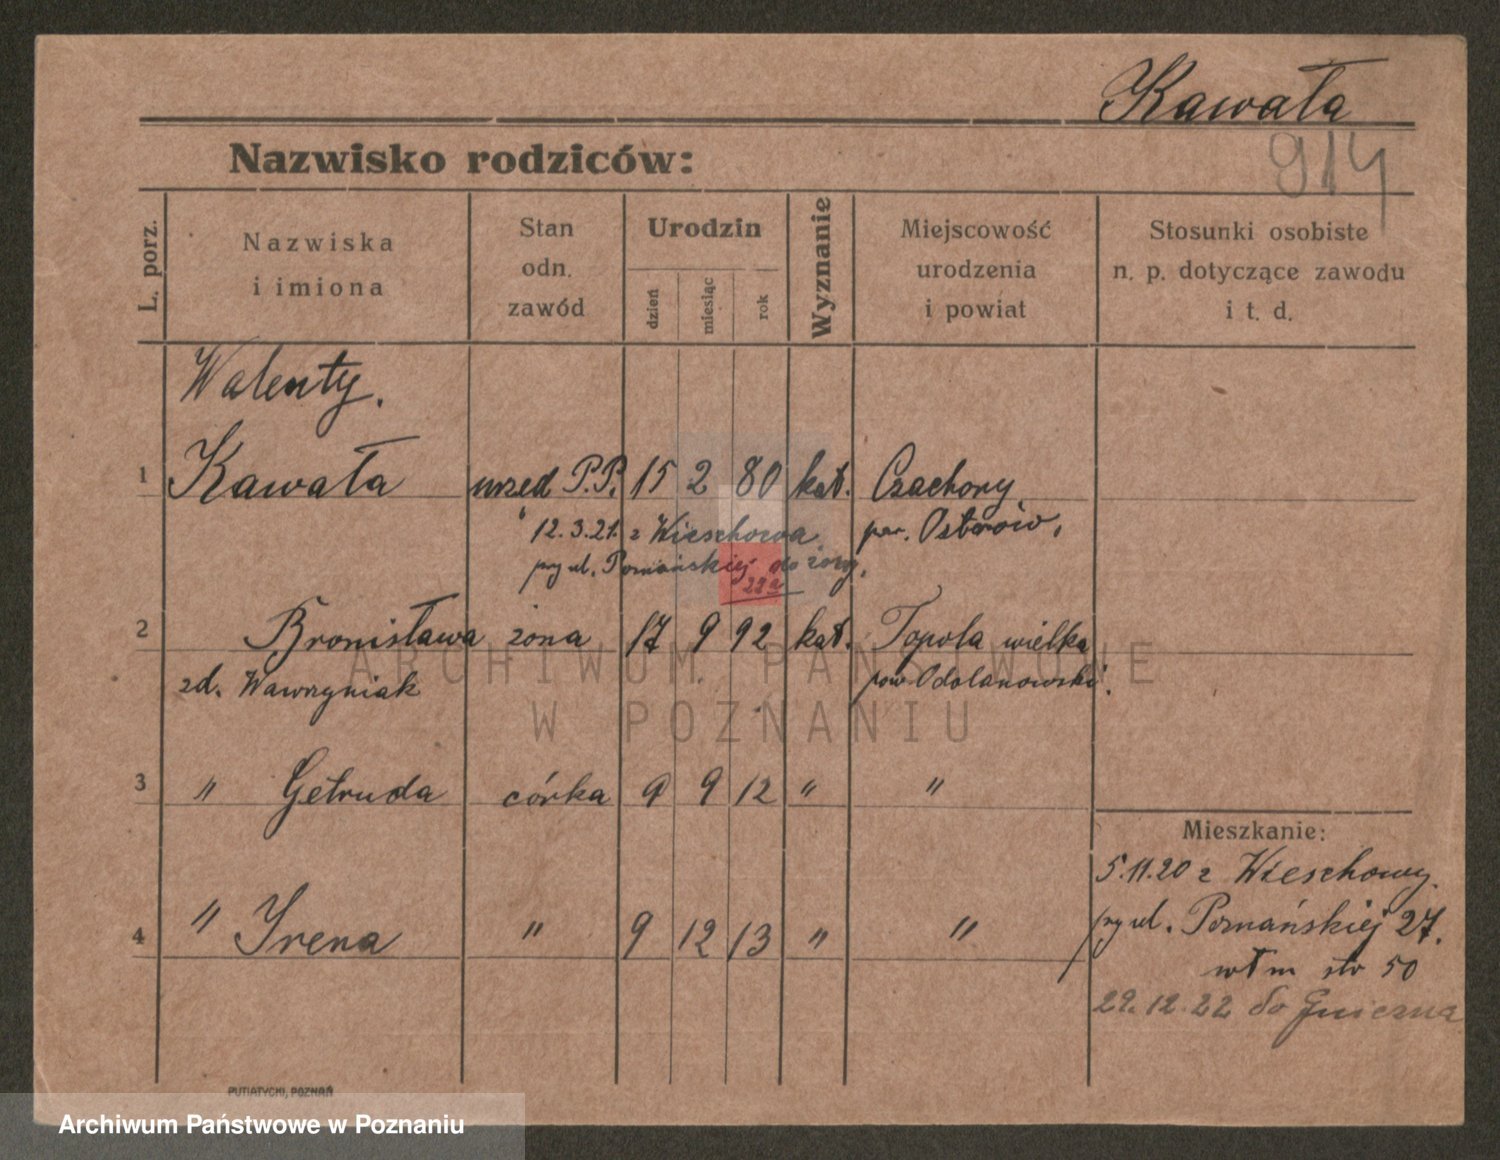 Kawała
914
Nazwisko rodziców:
L. porz.
Nazwiska
i imiona
Stan
odn.
zawód
Urodzin
dzień
miesiąc
rok
Wyznanie
Miejscowość
urodzenia
i powiat
Stosunki osobiste
n. p. dotyczące zawodu
i t. d.
Walenty.
1 Kawała urzed P.P. 15 2 80 kat. Czachory
12.3.21. z Wieschowa pow. Ostrów,
przy ul. Poznańskiej do żony,
22a
2 Bronisława żona 17 9 92 kat. Topola wielka
zd. Wawrzyniak pow. Odolanowski.
3 " Getruda córka 9 9 12 " "
Mieszkanie:
5.11.20 z Wieschowy.
4 " Irena " 9 12 13 " "
przy ul. Poznańskiej 27.
str 50
29.12.22 do Gniezna
PUTIATYCKI, POZNAŃ
ARCHIWUM PAŃSTWOWE
W POZNANIU
Archiwum Państwowe w Poznaniu